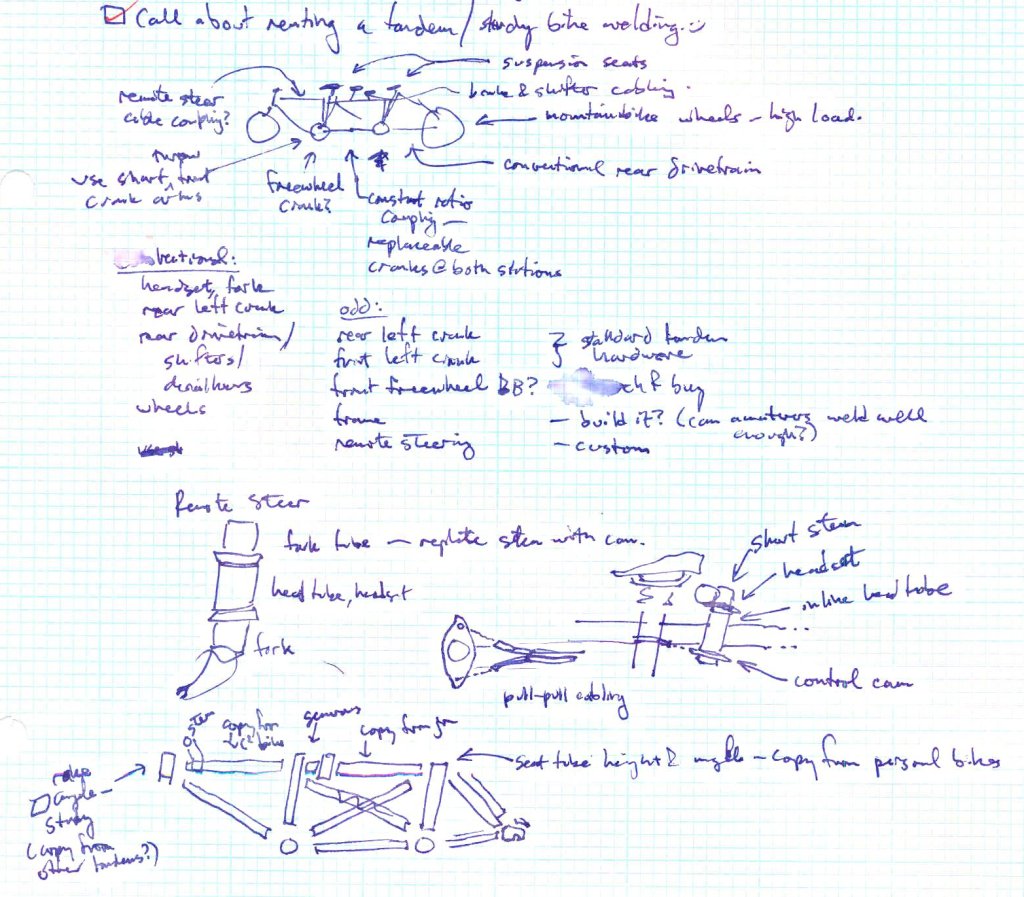 Call about renting a tandem / study bike welding. :)
suspension seats
brake & shifter cabling.
remote steer
cable coupling?
mountainbike wheels - high load.
conventional rear drivetrain
narrow
use short, front
crank arms
freewheel
crank?
constant ratio
coupling -
replaceable
cranks @ both stations
headset, fork
rear left crank
rear drivetrain/
shifters/
derailleurs
wheels
odd:
rear left crank
front left crank
front freewheel BB?
frame
remote steering
standard tandem
hardware
R buy
- build it? (can amateurs weld well
enough?)
- custom
Remote Steer
fork tube - replace stem with cam.
head tube, headset
fork
short stem
headset
inline head tube
control cam
pull-pull cabling
stem
copy from
bike
generous
copy from
seat tube height & angle - copy from personal bikes
angle -
study
(copy from
other tandems?)